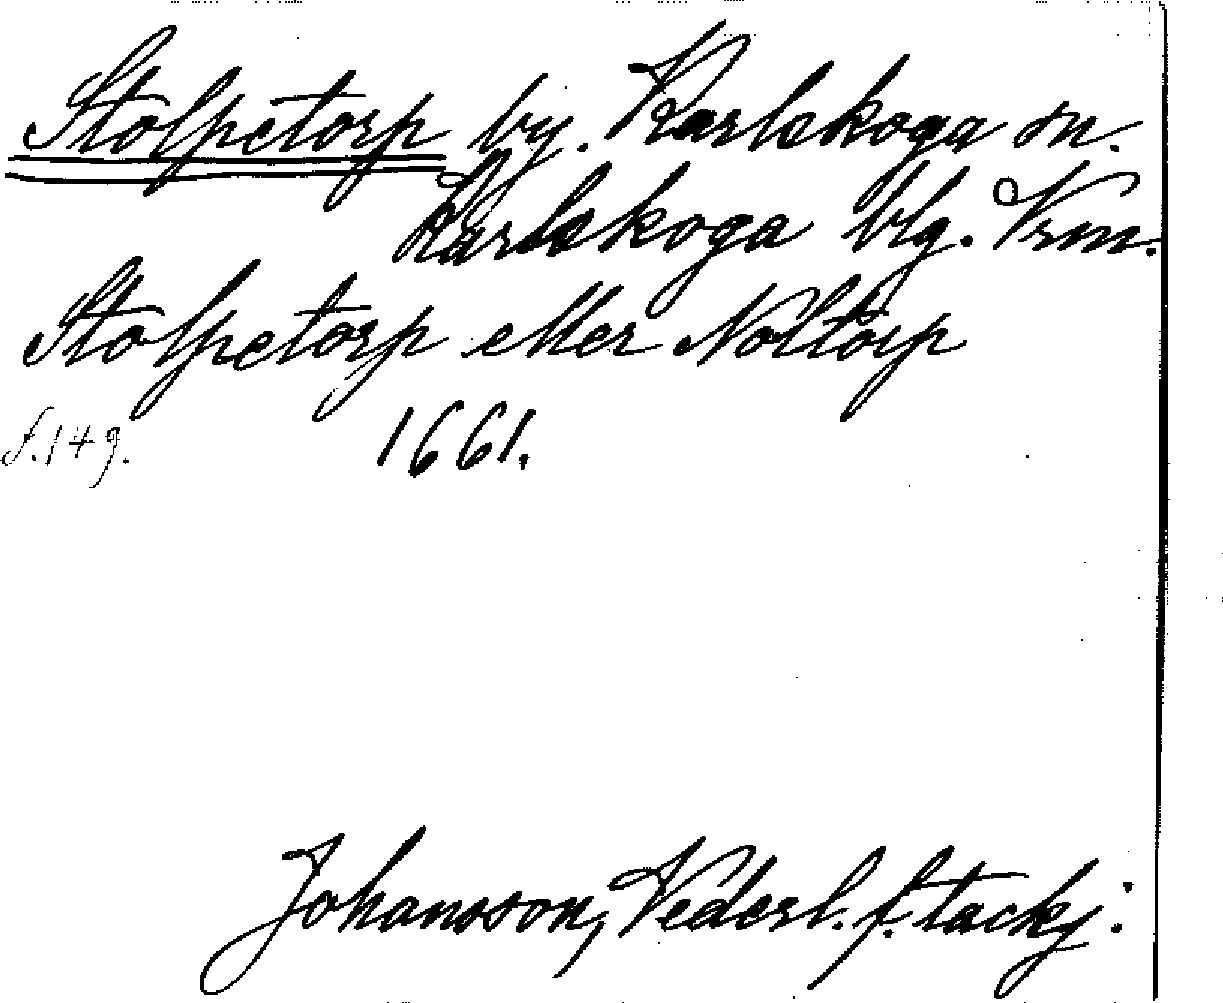 Stolpetorp by. Karlskoga sn.
Karlskoga blg. Vrm.
Stolpetorp eller Noltorp
f. 149. 1661.
Johansson, Vederl. f. tackj: